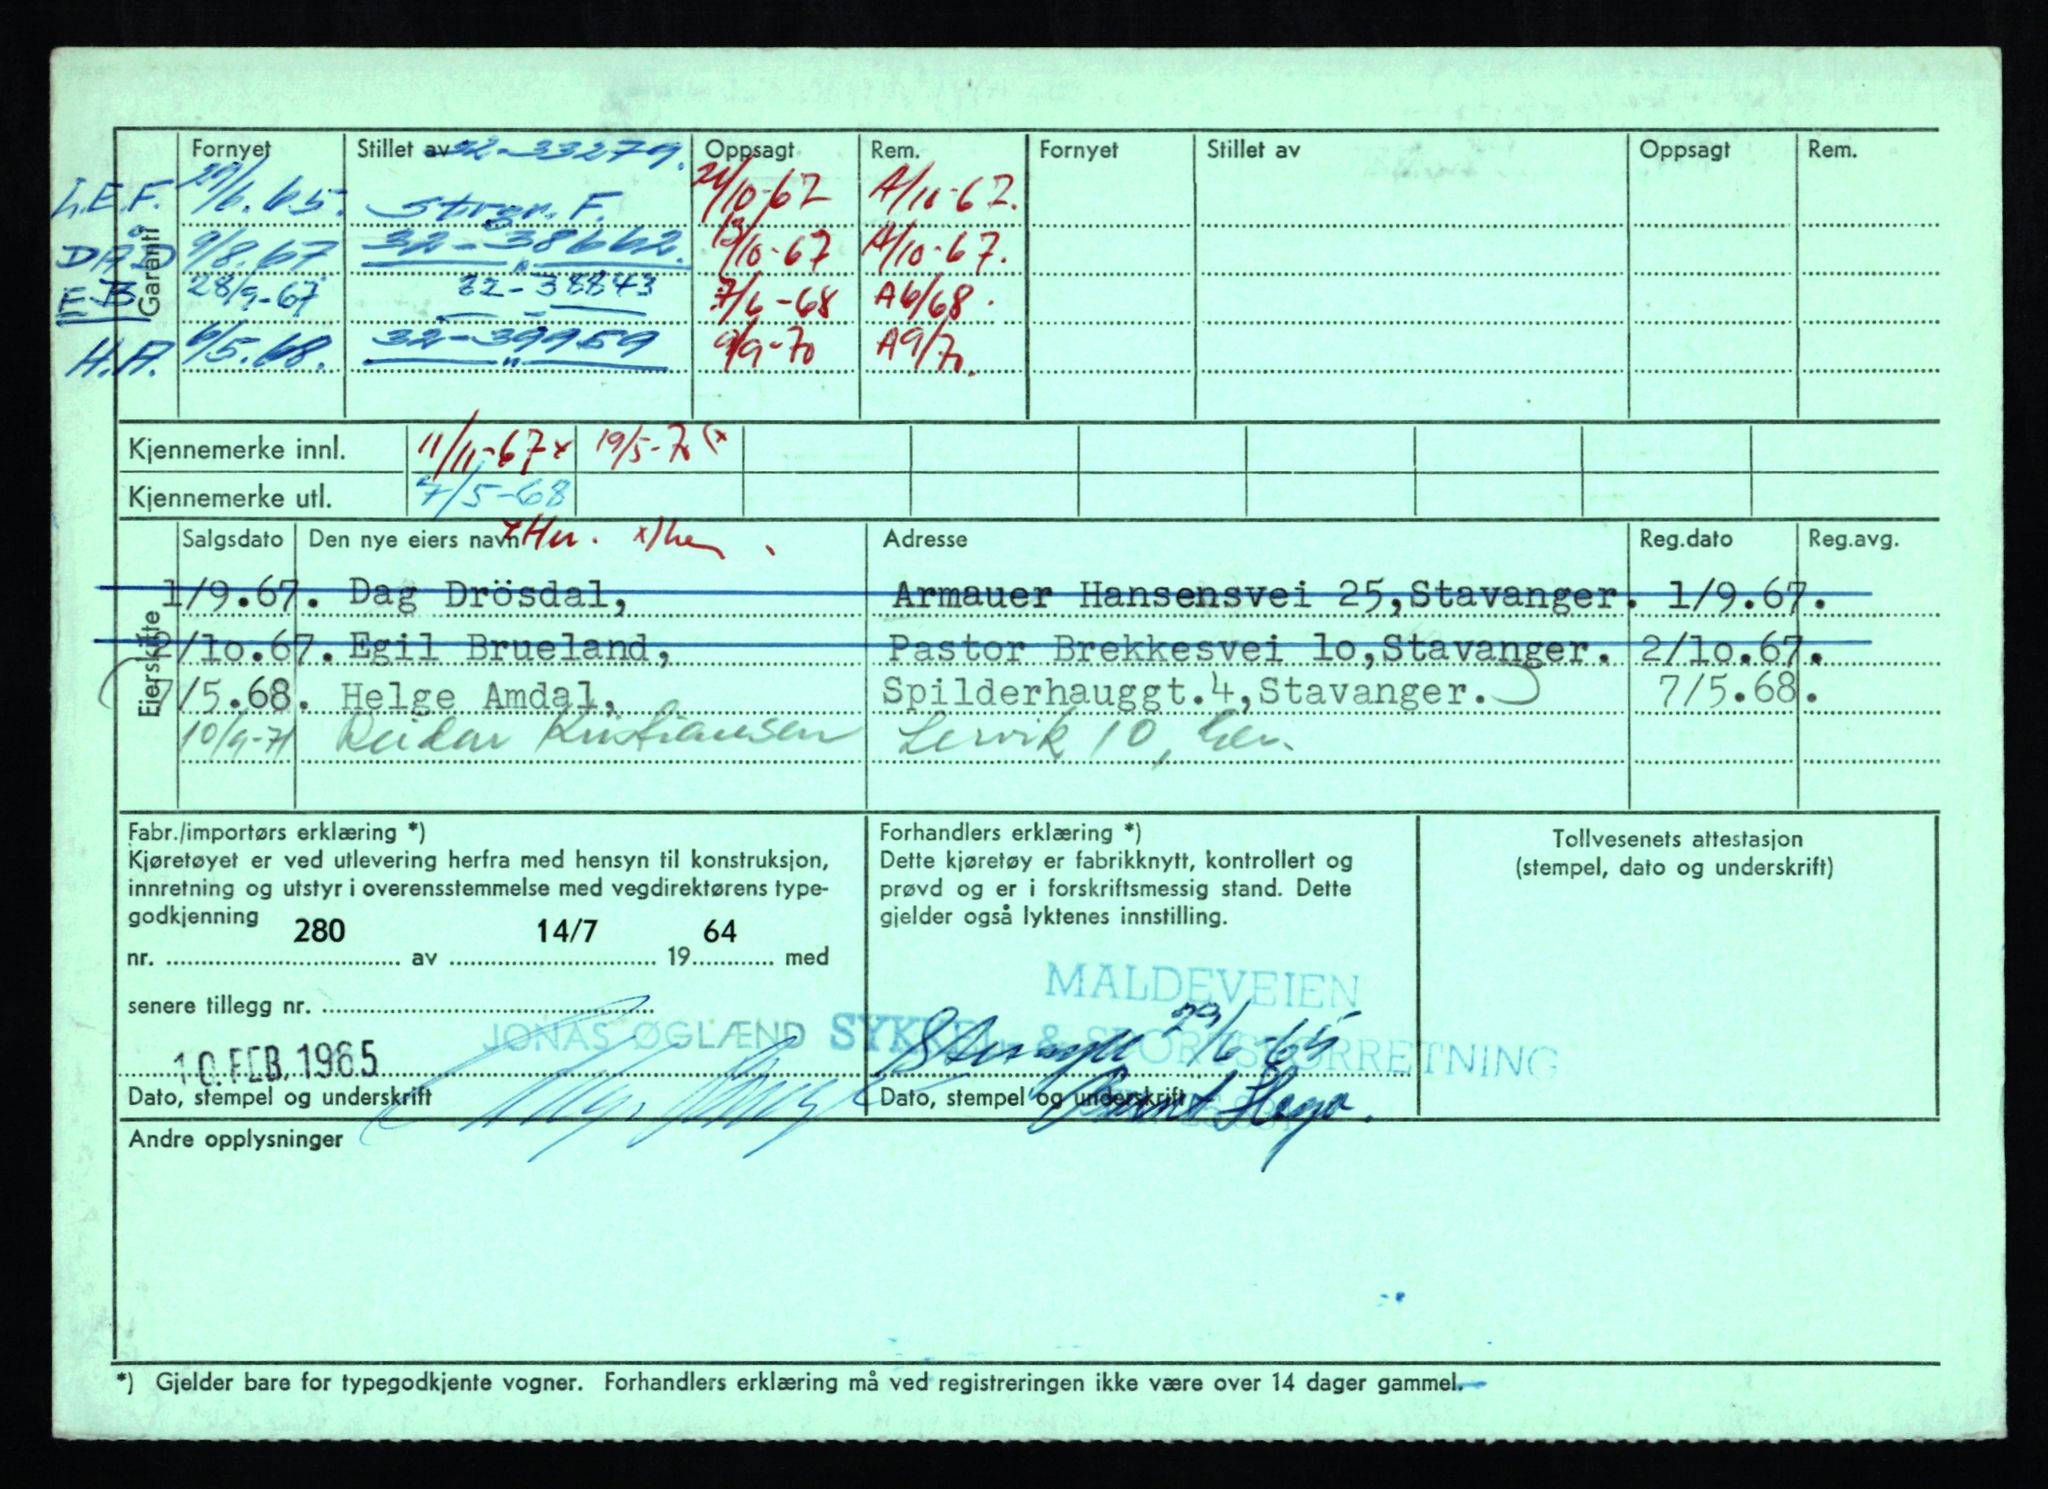 Garanti
Fornyet Stillet av Oppsagt Rem. Fornyet Stillet av Oppsagt Rem.
32-33279.
29/6.65. F. 10-67 A/10-67.
DÅD 9/8.67 32-38662. 13/10-67 A/10-67.
E B 28/9-67 32-38843 7/6-68 A6/68.
H.A. 6/5.68. 32-39959 9/9-70 A9/70.
Kjennemerke innl. 11/11-67x 19/5-70 (x
Kjennemerke utl. 7/5-68
Eierskifte
Salgsdato Den nye eiers navn Adresse Reg.dato Reg.avg.
1/9.67. Dag Drösdal, Armauer Hansensvei 25,Stavanger. 1/9.67.
2/10.67. Egil Brueland, Pastor Brekkesvei 10,Stavanger. 2/10.67.
7/5.68. Helge Amdal, Spilderhauggt.4,Stavanger. 7/5.68.
10/9-71 Reidar Kristiansen Lervik 10,
Fabr./importørs erklæring *)
Kjøretøyet er ved utlevering herfra med hensyn til konstruksjon,
innretning og utstyr i overensstemmelse med vegdirektørens type-
godkjenning
nr. 280 av 14/7 19 64 med
senere tillegg nr.
JONAS ØGLÆND
10. FEB. 1965
Dato, stempel og underskrift
Forhandlers erklæring *)
Dette kjøretøy er fabrikknytt, kontrollert og
prøvd og er i forskriftsmessig stand. Dette
gjelder også lyktenes innstilling.
MALDEVEIEN
SYKKEL & SPORTSFORRETNING
29/6-65
Dato, stempel og underskrift
Tollvesenets attestasjon
(stempel, dato og underskrift)
Andre opplysninger
*) Gjelder bare for typegodkjente vogner. Forhandlers erklæring må ved registreringen ikke være over 14 dager gammel.